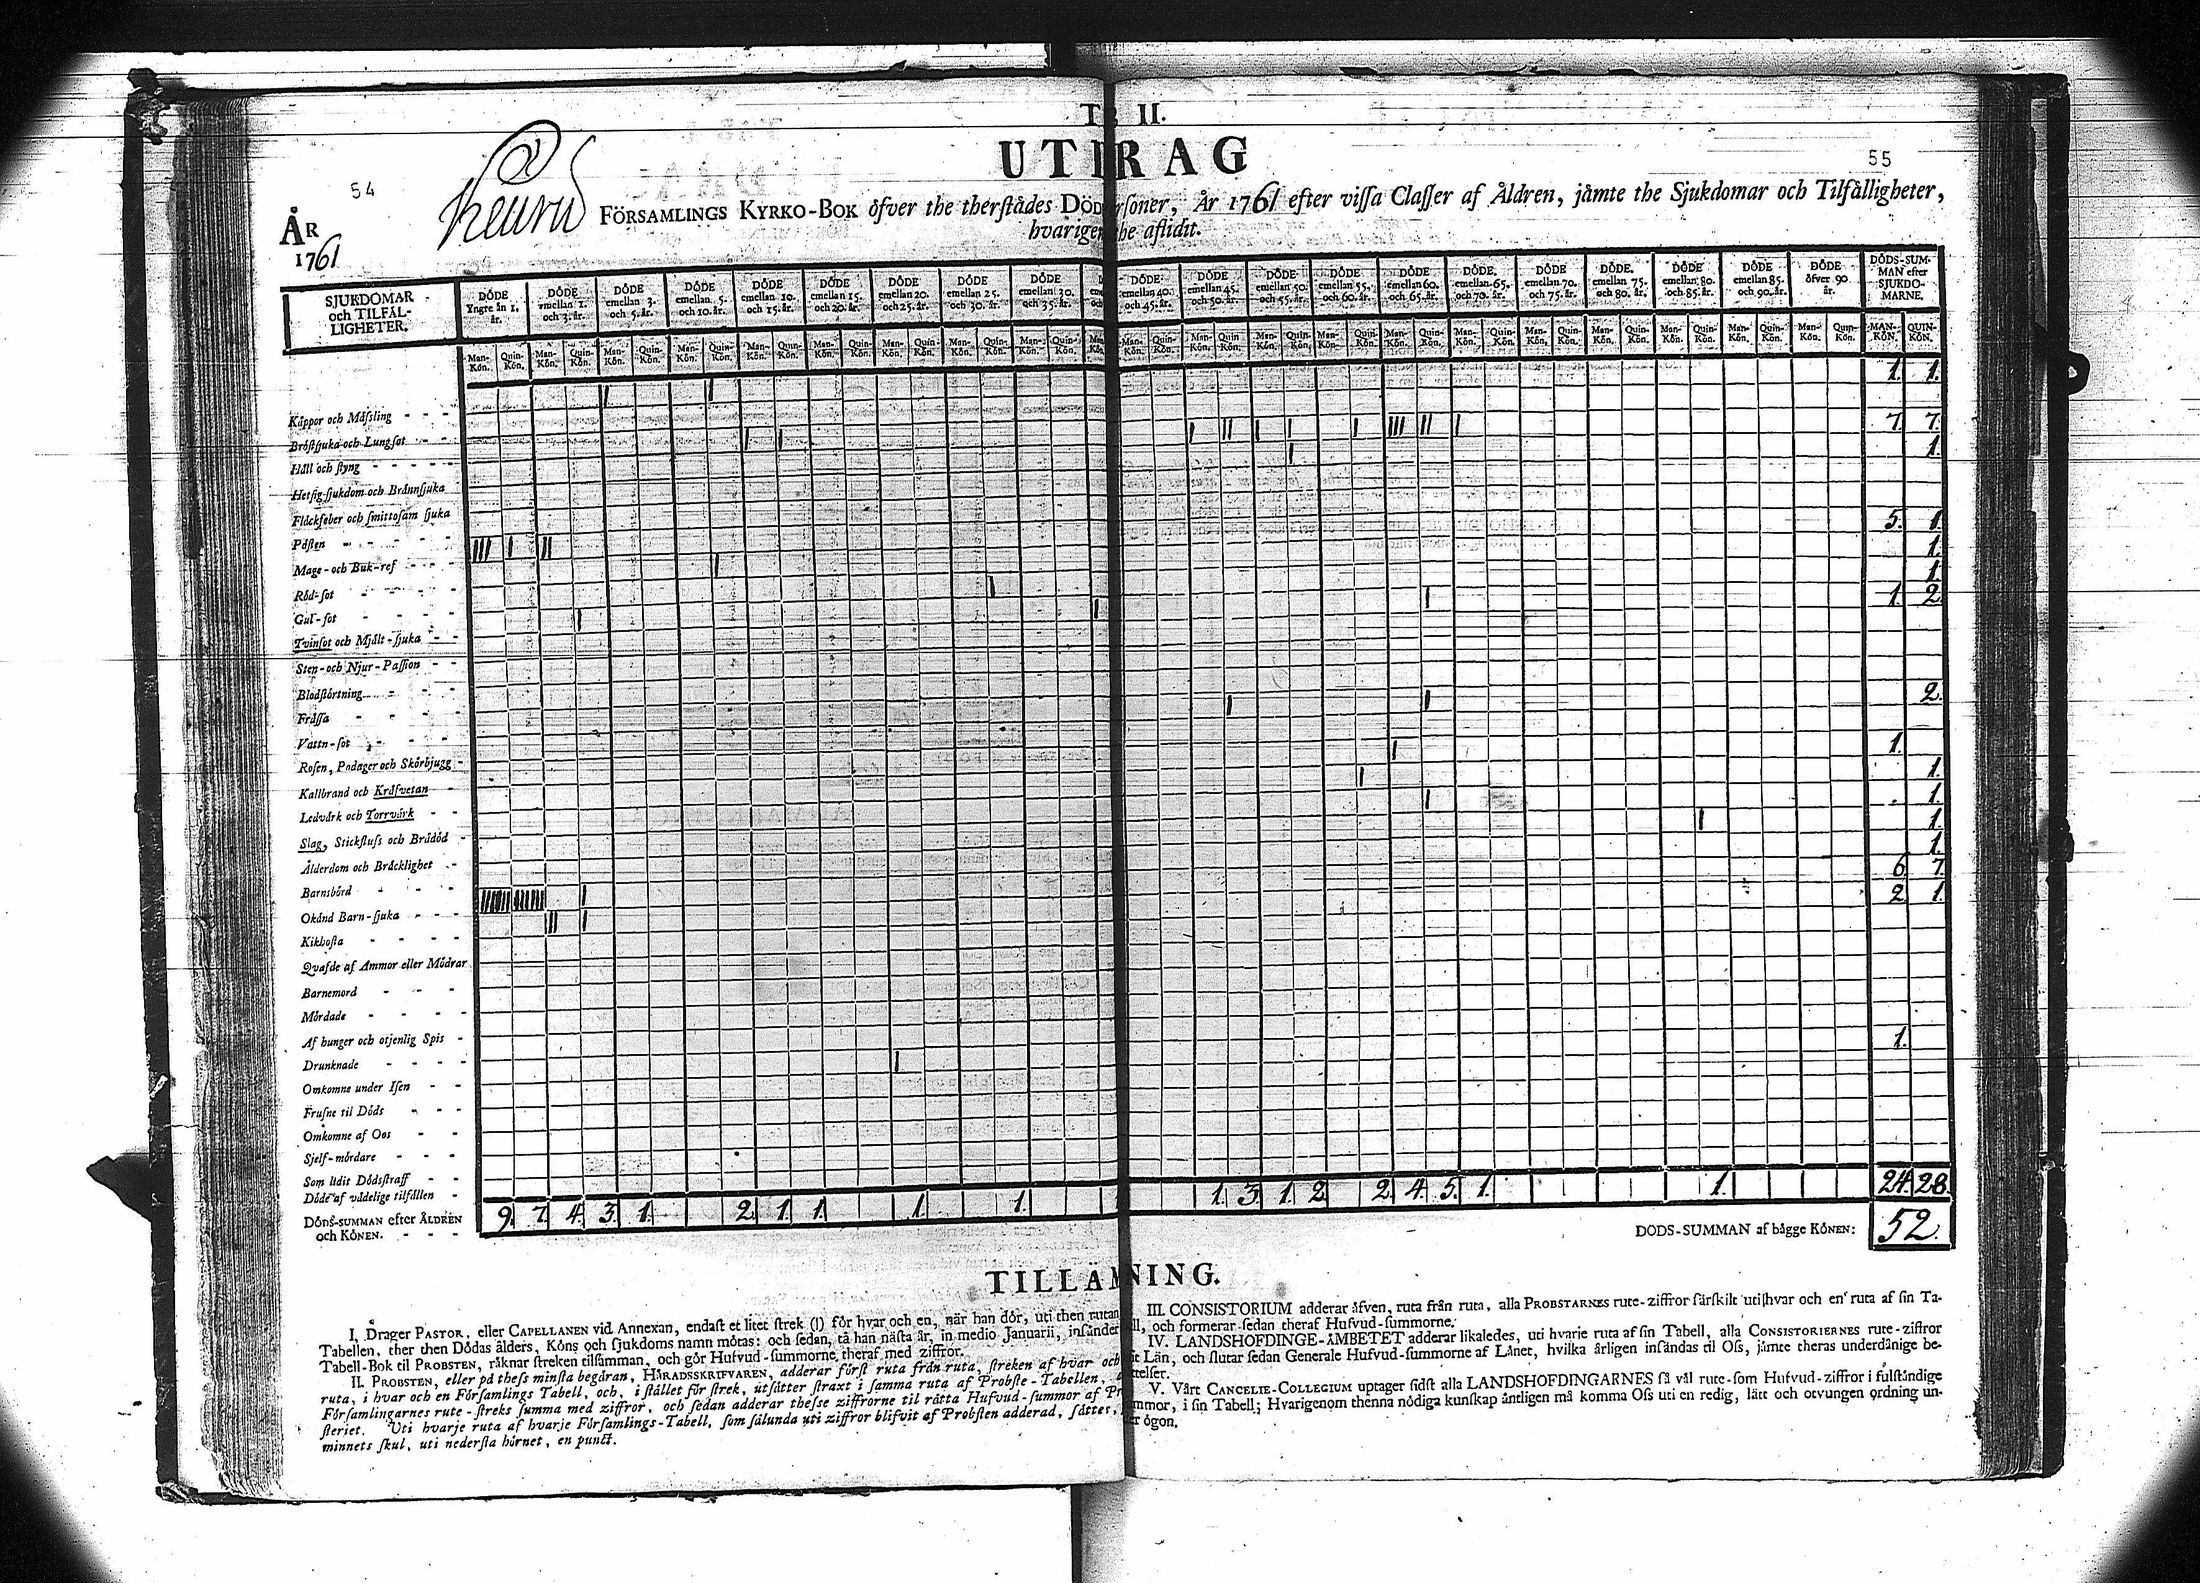 II.
UT RAG
54
55
Keuru FÖRSAMLINGS KYRKO-BOK öfver the therstådes DÖD rsoner, År 1761 efter vissa Classer af Åldren, jämte the Sjukdomar och Tilfälligheter,
hvarige he aflidit.
ÅR
1761
SJUKDOMAR och TILFÄL-LIGHETER.
DÖDE Yngre än 1. år.
DÖDE emellan 1. och 3. år.
DÖDE emellan 3. och 5. år.
DÖDE emellan 5. och 10. år.
DÖDE emellan 10. och 15. år.
DÖDE emellan 15. och 20. år.
DÖDE emellan 20. och 25. år.
DÖDE emellan 25. och 30. år.
DÖDE emellan 30. och 35. år.
DÖDE emellan 40. och 45. år.
DÖDE emellan 45. och 50. år.
DÖDE emellan 50. och 55. år.
DÖDE emellan 55. och 60. år.
DÖDE emellan 60. och 65. år.
DÖDE. emellan 65. och 70. år.
DÖDE emellan 70. och 75. år.
DÖDE. emellan 75. och 80. år.
DÖDE emellan 80. och 85. år.
DÖDE emellan 85. och 90. år.
DÖDE öfver 90 år.
DÖDS-SUM-MAN efter SJUKDO-MARNE.
Man-Kön. Quin-Kön. Man-Kön. Quin-Kön. Man-Kön. Quin-Kön. Man-Kön. Quin-Kön. Man-Kön. Quin-Kön. Man-Kön. Quin-Kön. Man-Kön. Quin-Kön. Man-Kön. Quin-Kön. Man-Kön. Quin-Kön. MAN-KÖN. QUIN-KÖN.
Kåppor och Måssling | | 1. 1.
Bröstsjuka och Lungsot | | | || | | | ||| || | 7. 7.
Håll och styng | 1.
Hetsig sjukdom och Brännsjuka
Fläckfeber och smittosam sjuka
Påsten ||| | || 5. 1.
Mage-och Buk-ref | 1.
Röd-sot | 1.
Gul-sot | | | 1. 2
Tvinsot och Mjält-sjuka
Sten-och Njur-Passion
Blodstörtning
Frässa | | 2.
Vattn-sot | 1.
Rosen, Podager och Skörbjugg | 1.
Kallbrand och Kräfvetan | 1.
Ledvärk och Torrvärk | 1.
Slag, Stickfluss och Brådöd 1.
Ålderdom och Bräcklighet 6. 7.
Barnsbörd 2 1.
Okänd Barn-sjuka
Kikhosta
Qvafde af Ammor eller Mödrar
Barnemord
Mördade
Af hunger och otjenlig Spis 1.
Drunknade |
Omkomne under Isen
Frusne til Döds
Omkomne af Oos
Sjelf-mördare
Som lidit Dödsstraff
Döde af vådelige tilfällen
DÖDS-SUMMAN efter ÅLDREN och KÖNEN. 9. 7. 4. 3. 1. 2. 1. 1. 1. 1. 1. 3. 1. 2. 2. 4. 5. 1. 1. 24. 28.
DÖDS-SUMMAN af bägge KÖNEN: 52.
TILLÄ NING.
I. Drager PASTOR, eller CAPELLANEN vid Annexan, endast et litet strek (|) för hvar och en, när han dör, uti then rutan
Tabellen, ther then Dödas ålders, Köns och sjukdoms namn mötas: och sedan, tå han nästa år, in medio Januarii, insänder
Tabell-Bok til PROBSTEN, räknar streken tilsamman, och gör Hufvud-summorne theraf med ziffror.
II. PROBSTEN, eller på thess minsta begäran, HÄRADSSKRIFVAREN, adderar först ruta från ruta, streken af hvar och
ruta, i hvar och en Församlings Tabell, och, i stället för strek, utsätter straxt i samma ruta af Probste-Tabellen,
Församlingarnes rute-streks summa med ziffror, och sedan adderar thesse ziffrorne til rätta Hufvud-summor af Pr
steriet. Uti hvarje ruta af hvarje Församlings-Tabell, som sålunda uti ziffror blifvit af Probsten adderad, sättes,
minnets skul, uti nedersta hörnet, en punct.
III. CONSISTORIUM adderar äfven, ruta från ruta, alla PROBSTARNES rute-ziffror särskilt uti hvar och en ruta af sin Ta-
ll, och formerar sedan theraf Hufvud-summorne.
IV. LANDSHÖFDINGE-ÄMBETET adderar likaledes, uti hvarje ruta af sin Tabell, alla CONSISTORIERNES rute-ziffror
it Län, och slutar sedan Generale Hufvud-summorne af Länet, hvilka årligen insändas til Oss, jämte theras underdånige be-
ttelser.
V. Vårt CANCELIE-COLLEGIUM uptager sidst alla LANDSHÖFDINGARNES så väl rute-som Hufvud-ziffror i fulständige
mmor, i sin Tabell; Hvarigenom thenna nödiga kunskap äntligen må komma Oss uti en redig, lätt och otvungen ordning un-
er ögon.